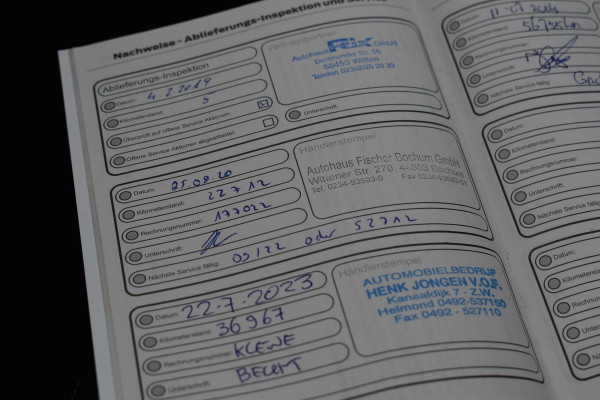 Nachweise - Ablieferungs-Inspektion und
Ablieferungs-Inspektion
Datum: 4.2.2019
Kilometerstand: 5
Überprüft auf offene Service Aktionen
Offene Service Aktionen abgearbeitet
Vertragspartner
Autohaus Feix GmbH
Dortmunder Str. 56
58453 Witten
Telefon 02302/20 20 20
Unterschrift:
Datum: 25.09.20
Kilometerstand: 22712
Rechnungsnummer: 177022
Unterschrift:
Nächste Service fällig: 09/22 oder 52712
Händlerstempel
Autohaus Fischer Bochum GmbH
Wittener Str. 270, 44803 Bochum
Tel. 0234-93593-0 Fax 0234-93593-51
Datum: 22-7-2023
Kilometerstand: 36967
Rechnungsnummer: KLEINE
Unterschrift: BEURT
Händlerstempel
AUTOMOBIELBEDRIJF
HENK JONGEN V.O.F.
Kanaaldijk 7 - Z.W.
Helmond 0492-537150
Fax 0492 - 527110
Datum:
Kilometerstand:
Rechnungsnummer:
Unterschrift:
Nächste Service fällig:
Datum:
Kilometerstand:
Rechnungsnummer:
Unterschrift:
Nächste Service fällig:
Datum:
Kilometerstand: